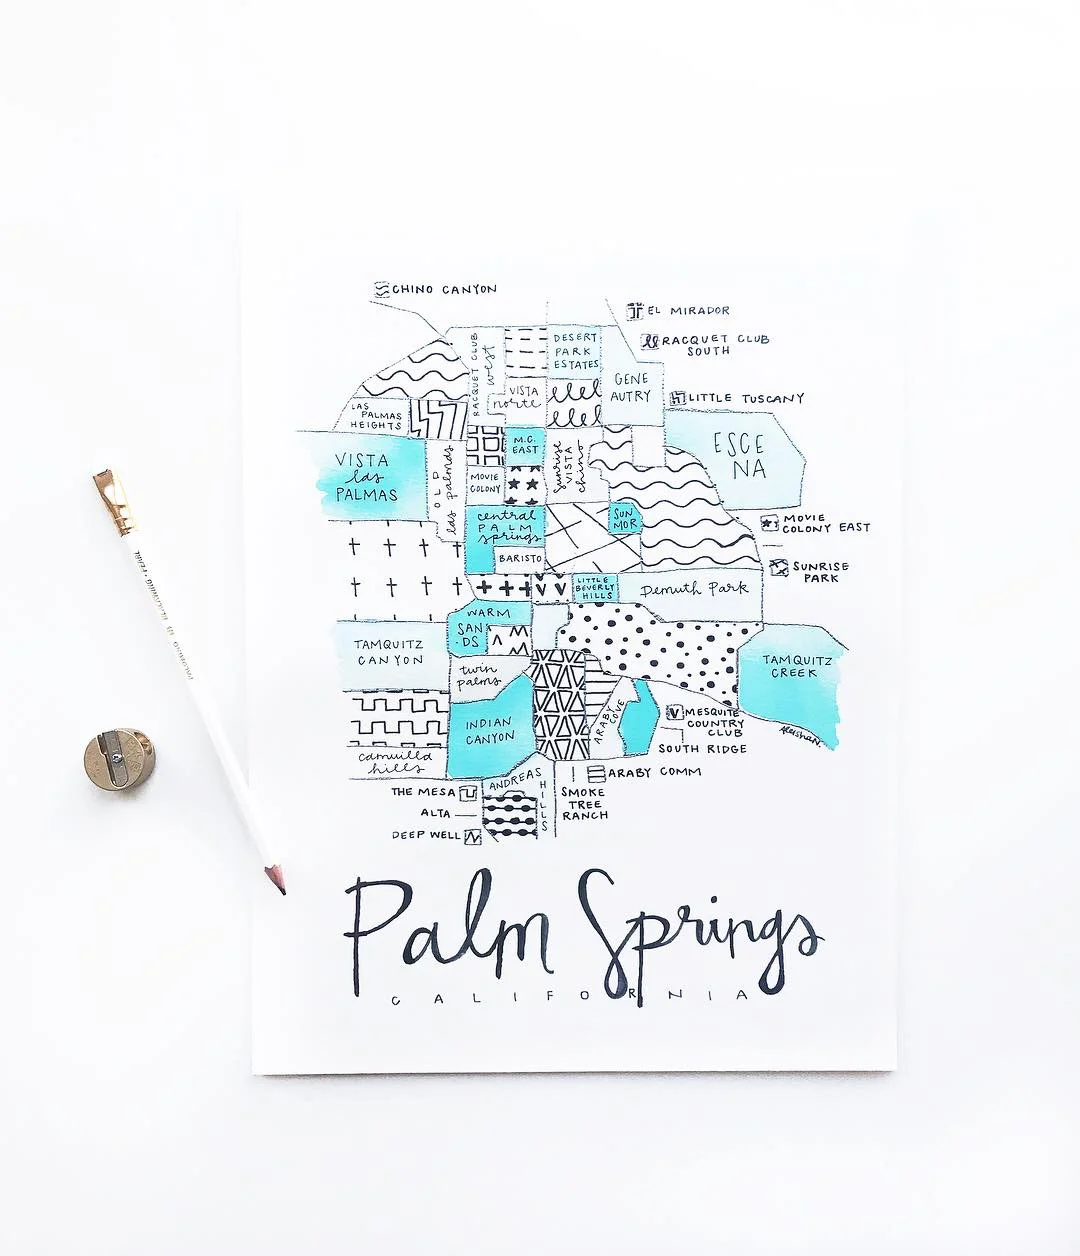 CHINO CANYON
EL MIRADOR
RACQUET CLUB
SOUTH
DESERT
PARK
ESTATES
RACQUET CLUB
west
GENE
AUTRY
VISTA
norte
LITTLE TUSCANY
LAS
PALMAS
HEIGHTS
M.C.
EAST
ESCE
NA
VISTA
las
PALMAS
OLD
las palmas
MOVIE
COLONY
Sunrise
VISTA
chino
central
PALM
springs
SUN
MOR
MOVIE
COLONY EAST
BARISTO
SUNRISE
PARK
LITTLE
BEVERLY
HILLS
Demuth Park
WARM
SAN
DS
TAMQUITZ
CANYON
twin
palms
TAMQUITZ
CREEK
INDIAN
CANYON
ARABY COVE
MESQUITE
COUNTRY
CLUB
SOUTH RIDGE
cahuilla
hills
ANDREAS
HILLS
ARABY COMM
THE MESA
SMOKE
TREE
RANCH
ALTA
DEEP WELL
Palm Springs
CALIFORNIA